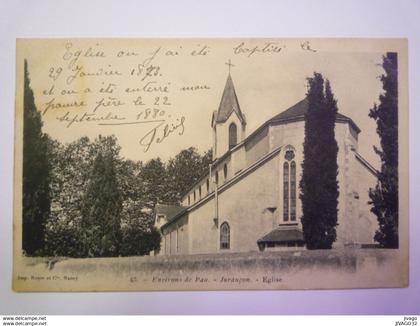 Eglise ou j'ai été baptisé le
29 Janvier 1873.
et ou a été enterré mon
pauvre père le 22
septembre 1880
Felix
45. Environs de Pau. - Jurançon. - Eglise
Imp. Royer et Cie, Nancy
jivago
JIVAGO32